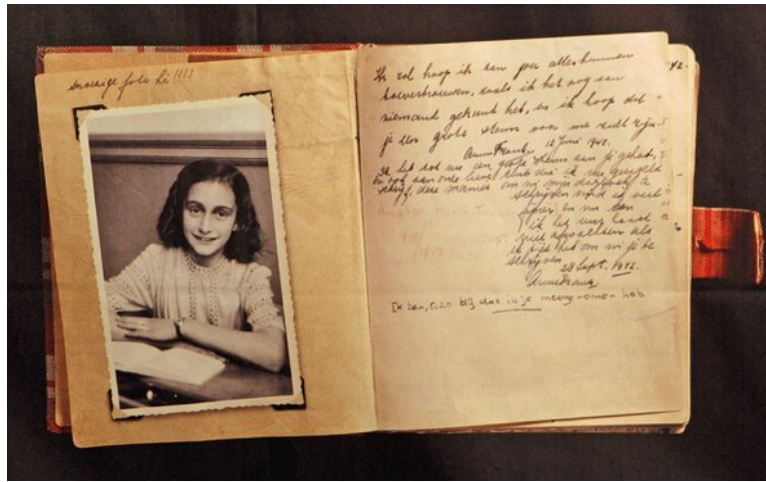 snoezige foto hè!!!!
Ik zal hoop ik aan jou alles kunnen
toevertrouwen, zoals ik het nog aan
niemand gekund heb, en ik hoop dat
je een grote steun voor me zult zijn.
Anne Frank. 12 Juni 1942.
Ik heb tot nu toe een grote steun aan je gehad,
en ook aan onze lieve club die ik nu geregeld
schrijf, deze manier om in mijn dagboek te
schrijven vind ik veel
fijner en nu kan
ik het uur haast
niet afwachten als
ik tijd heb om in je te
schrijven.
28 Sept. 1942.
Anne Frank
Ik ben, o, zo blij dat ik je meegenomen heb
942.